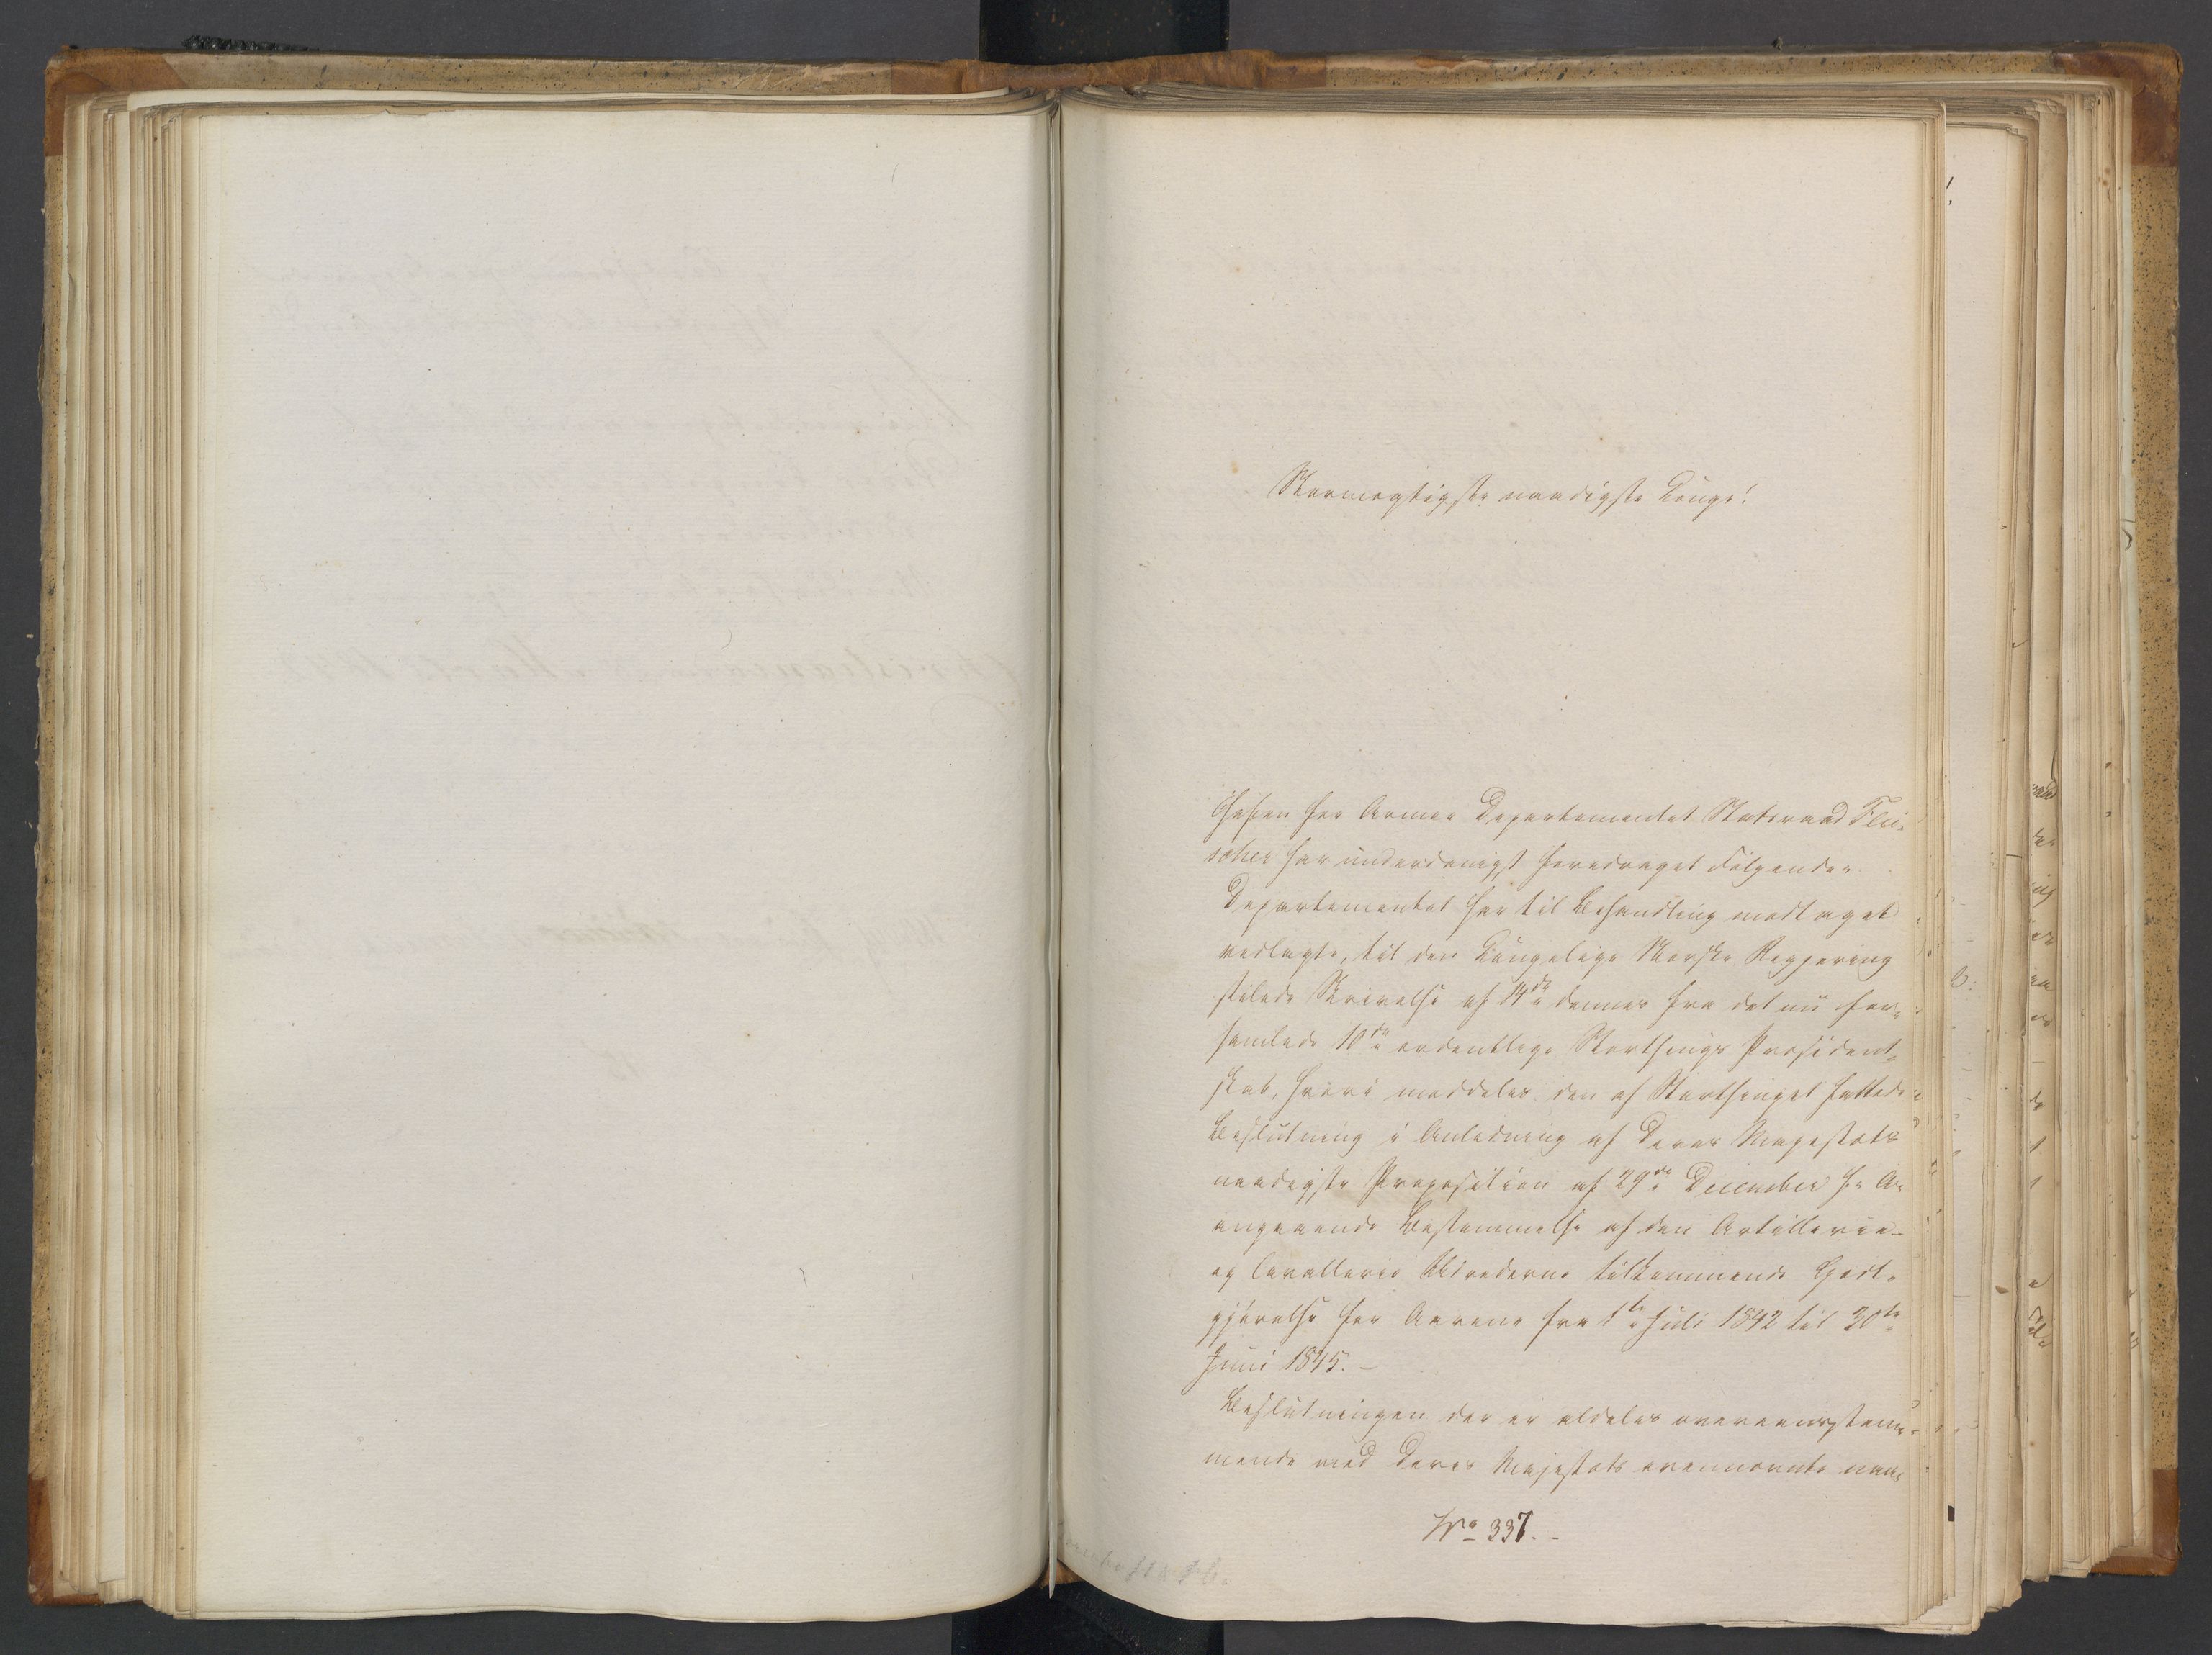 Stormægtigste naadigste Konge!
Chefen for Armee Departementet Statsraad Flei-
scher har underdanigst foredraget Følgende:
Departementet har til Behandling modtaget
vedlagte, til den Kongelige Norske Regjering
stilede Skrivelse af 14de dennes fra det nu for-
samlede 10de ordentlige Storthings Præsident-
skab, hvori meddeles den af Storthinget fattede
Beslutning i Anledning af Deres Majestæts
naadigste Proposition af 29de December f. A.
angaaende Bestemmelse af den Artillerie-
og Cavallerie Munderne tilkommende Godt-
gjørelse for Aarene fra 1te Juli 1842 til 30te
Juni 1845. -
Beslutningen der er aldeles overeensstem-
mende med Deres Majestæts ovennævnte naa-
No 337. -